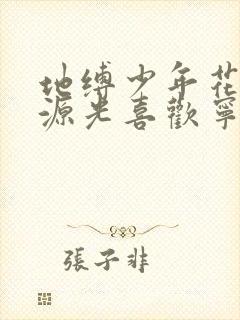 地缚少年花
源光喜歡寧
張子非